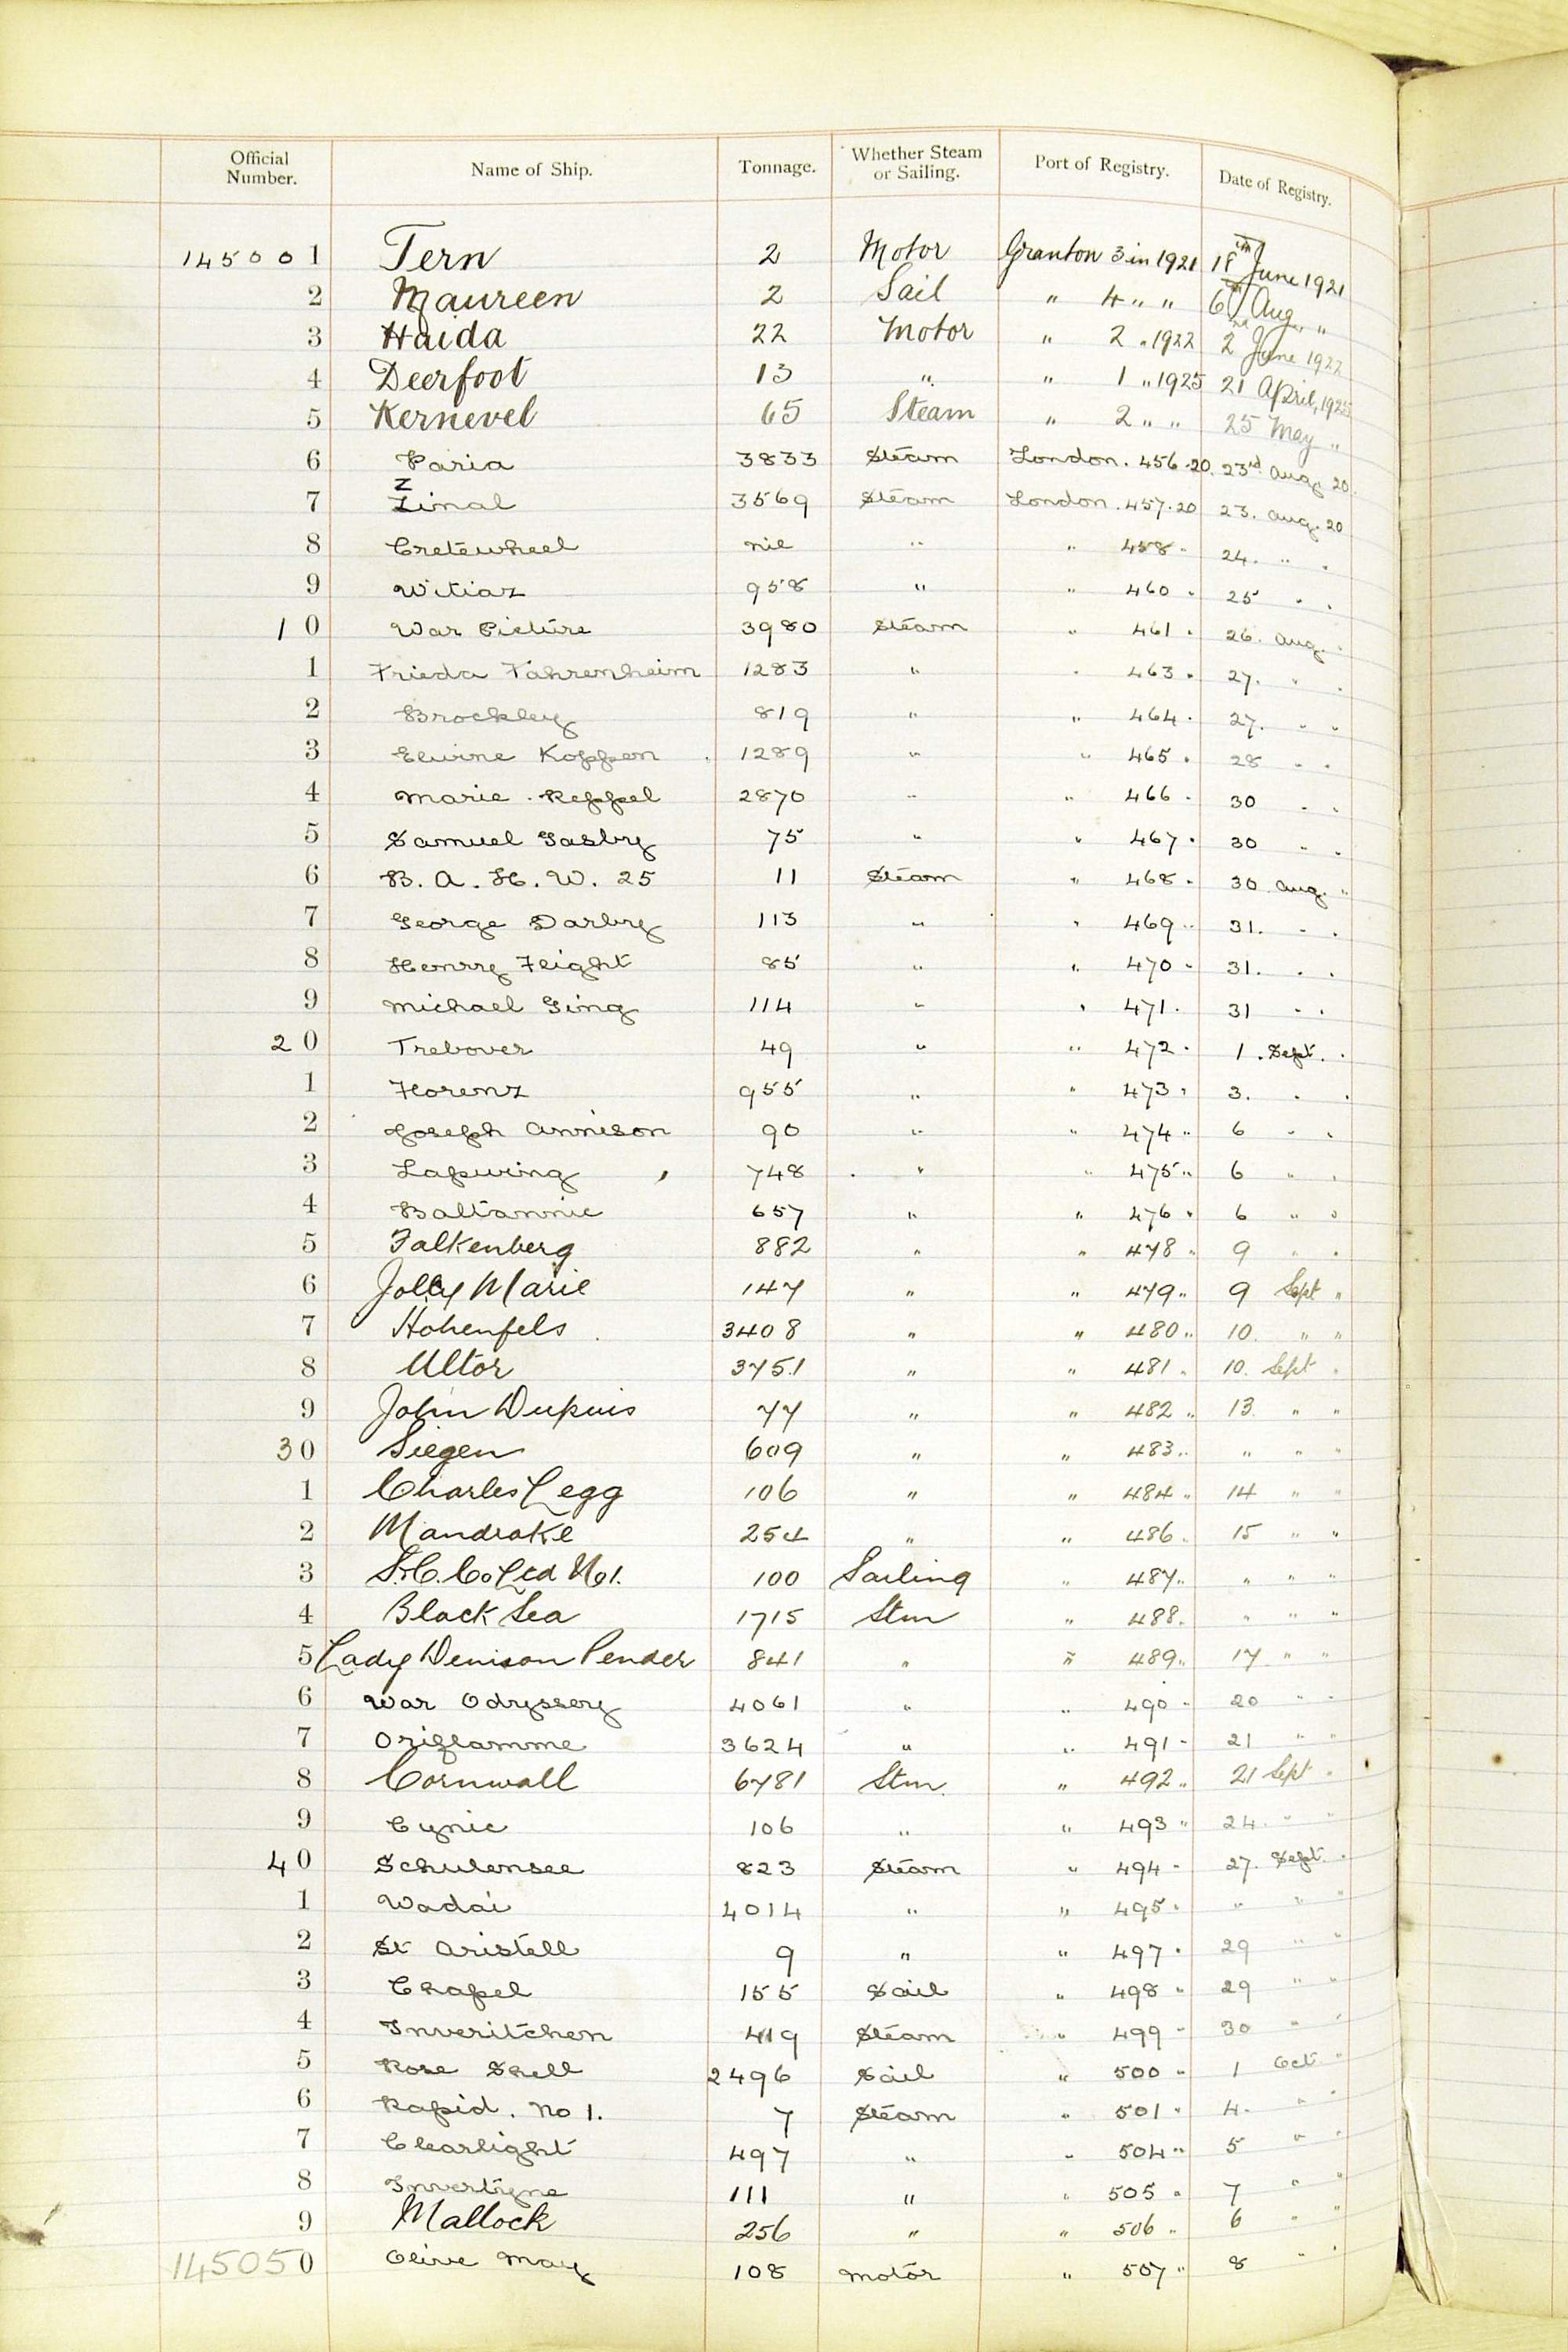 Official Number. Name of Ship. Tonnage. Whether Steam or Sailing. Port of Registry. Date of Registry.
145001 Tern 2 Motor Granton 3 in 1921 18th June 1921
2 Maureen 2 Sail " 4 " " 6th Aug. "
3 Haida 22 Motor " 2 " 1922 2nd June 1922
4 Deerfoot 13 " " 1 " 1925 21 April, 1925
5 Kernevel 65 Steam " 2 " " 25 May "
6 Paria 3833 Steam London. 456.20. 23rd Aug. 20.
7 Zinal 3569 Steam London. 457.20 23. Aug. 20
8 Cretewheel nil " " 458 " 24. " "
9 Witiaz 958 " " 460 " 25 " "
10 War Picture 3980 Steam " 461 " 26. Aug. "
1 Frieda Fahrenheim 1283 " " 463 " 27. " "
2 Brockley 819 " " 464 " 27. " "
3 Elwine Koppen 1289 " " 465 " 28 " "
4 Marie Reppel 2870 " " 466 " 30 " "
5 Samuel Gasby 75 " " 467 " 30 " "
6 B. A. H. W. 25 11 Steam " 468 " 30 Aug. "
7 George Darby 113 " " 469 " 31. " "
8 Henry Flight 85 " " 470 " 31. " "
9 Michael Ging 114 " " 471 " 31 " "
20 Trebover 49 " " 472 " 1. Sept. "
1 Florenz 955 " " 473 " 3. " "
2 Joseph Annison 90 " " 474 " 6 " "
3 Lapwing 748 " " 475 " 6 " "
4 Baltannic 657 " " 476 " 6 " "
5 Falkenberg 882 " " 478 " 9 " "
6 Jolly Marie 147 " " 479 " 9 Sept "
7 Hohenfels 3408 " " 480 " 10. " "
8 Ultor 3751 " " 481 " 10. Sept "
9 John Dupuis 77 " " 482 " 13. " "
30 Siegen 609 " " 483 " " " "
1 Charles Legg 106 " " 484 " 14 " "
2 Mandrake 254 " " 486 " 15 " "
3 Co Ltd No 1. 100 Sailing " 487 " " " "
4 Black Sea 1715 Stm " 488 " " " "
5 Lady Denison Pender 841 " " 489 " 17 " "
6 War Odyssey 4061 " " 490 " 20 " "
7 Oriflamme 3624 " " 491 " 21 " "
8 Cornwall 6781 Stm. " 492 " 21 Sept "
9 Cynic 106 " " 493 " 24. " "
40 Schulensee 823 Steam " 494 " 27. Sept. "
1 Wadai 4014 " " 495 " " " "
2 St Aristell 9 " " 497 " 29 " "
3 Chapel 155 Sail " 498 " 29 " "
4 Inveritchen 419 Steam " 499 " 30 " "
5 Rose Shell 2496 Sail " 500 " 1 Oct. "
6 Rapid. No 1. 7 Steam " 501 " 4. " "
7 Clearlight 497 " " 504 " 5 " "
8 Invertyne 111 " " 505 " 7 " "
9 Mallock 256 " " 506 " 6 " "
145050 Olive May 108 Motor " 507 " 8 " "